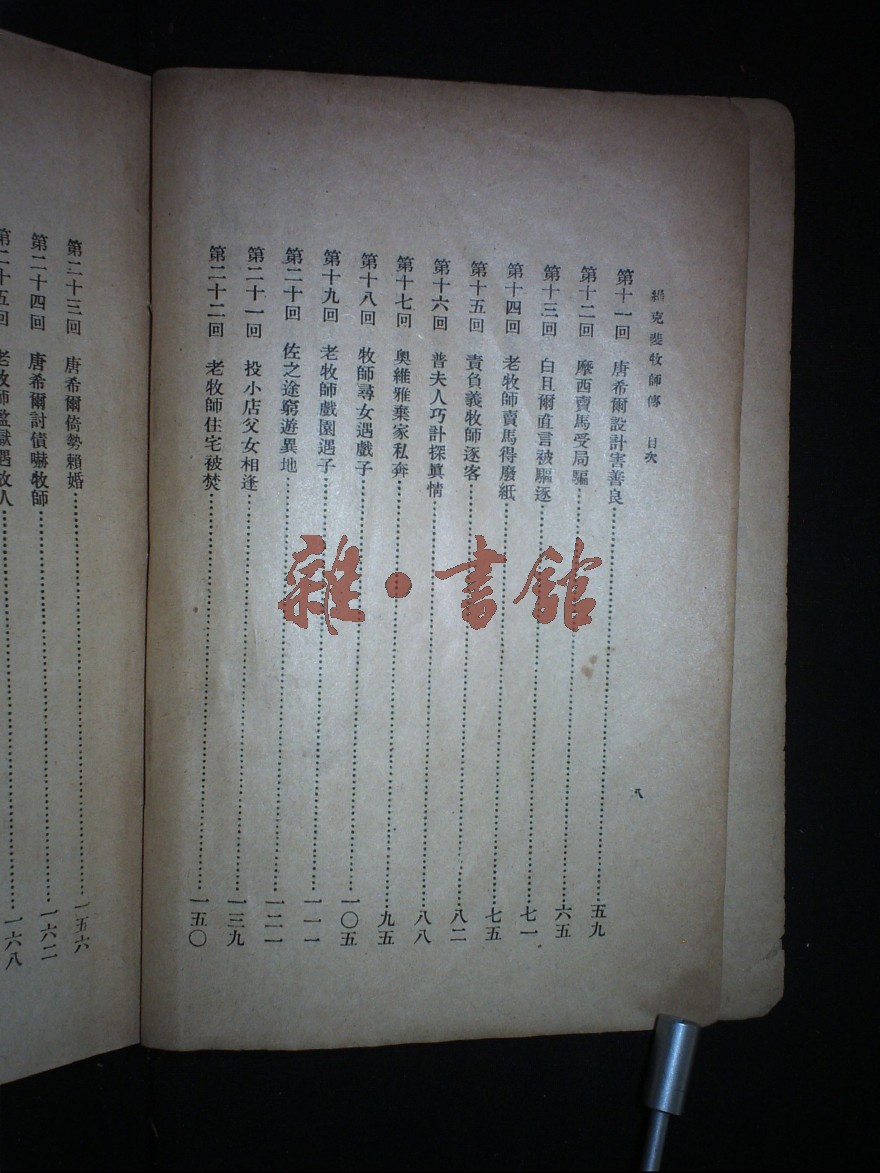 緯克斐牧師傳 目次
第十一回 唐希爾設計害善良 五九
第十二回 摩西賣馬受局騙 六五
第十三回 白且爾直言被驅逐 七一
第十四回 老牧師賣馬得廢紙 七五
第十五回 責負義牧師逐客 八二
第十六回 普夫人巧計探眞情 八八
第十七回 奧維雅棄家私奔 九五
第十八回 牧師尋女遇戲子 一〇五
第十九回 老牧師戲園遇子 一一一
第二十回 佐之途窮遊異地 一二一
第二十一回 投小店父女相逢 一三九
第二十二回 老牧師住宅被焚 一五〇
八
第二十三回 唐希爾倚勢賴婚 一五六
第二十四回 唐希爾討債嚇牧師 一六二
第二十五回 老牧師監獄遇故人 一六八
雜·書館